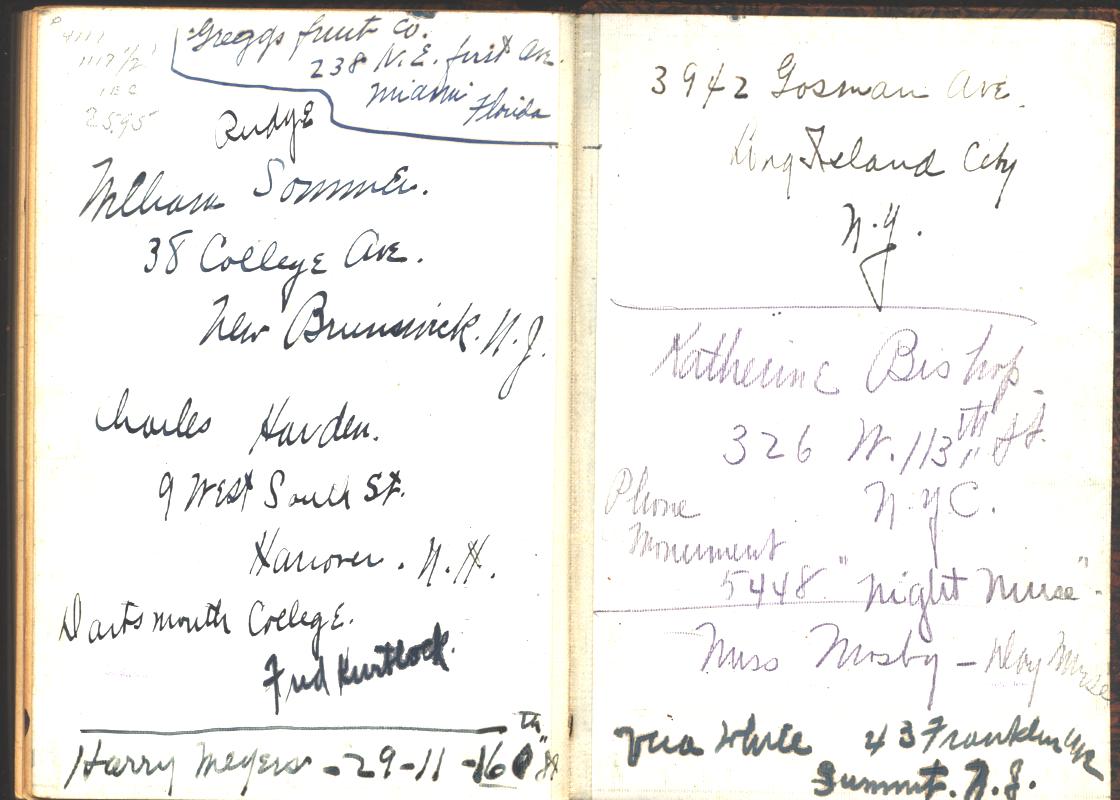 Greggs fruit Co.
238 N.E. first Ave.
Miami
Florida
1117 1/2
25.95
Rudge
William Sommer.
38 College Ave.
New Brunswick. N.J.
Charles Harden.
9 West South St.
Hanover. N.H.
Dartsmouth College.
Fred Kurtlock.
Harry Meyers - 29-11-160th St
3942 Gosman Ave.
Long Island City
N.Y.
Katherine Bishop
326 W. 113th St.
N.Y.C.
Phone
Monument
5448. "Night Nurse".
Miss Mosby - Day Nurse
Vera White 43 Franklin
Summit. N.J.